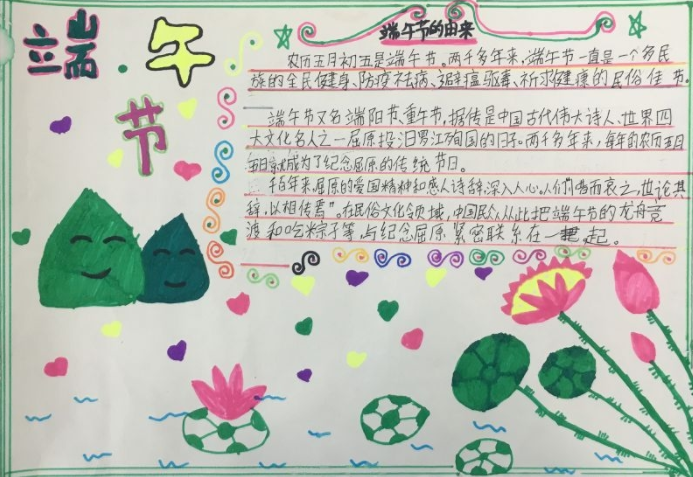 端午节
端午节的由来
农历五月初五是端午节。两千多年来,端午节一直是一个多民
族的全民健身、防疫祛病、避瘟驱毒、祈求健康的民俗佳节。
端午节又名端阳节、重午节,据传是中国古代伟大诗人、世界四
大文化名人之一屈原投汨罗江殉国的日子。两千多年来,每年的农历五月
五日就成为了纪念屈原的传统节日。
千百年来屈原的爱国精神和感人诗辞,深入人心。人们"惜而哀之,世论其
辞,以相传焉"。在民俗文化领域,中国民众从此把端午节的龙舟竞
渡和吃粽子等,与纪念屈原紧密联系在一起。